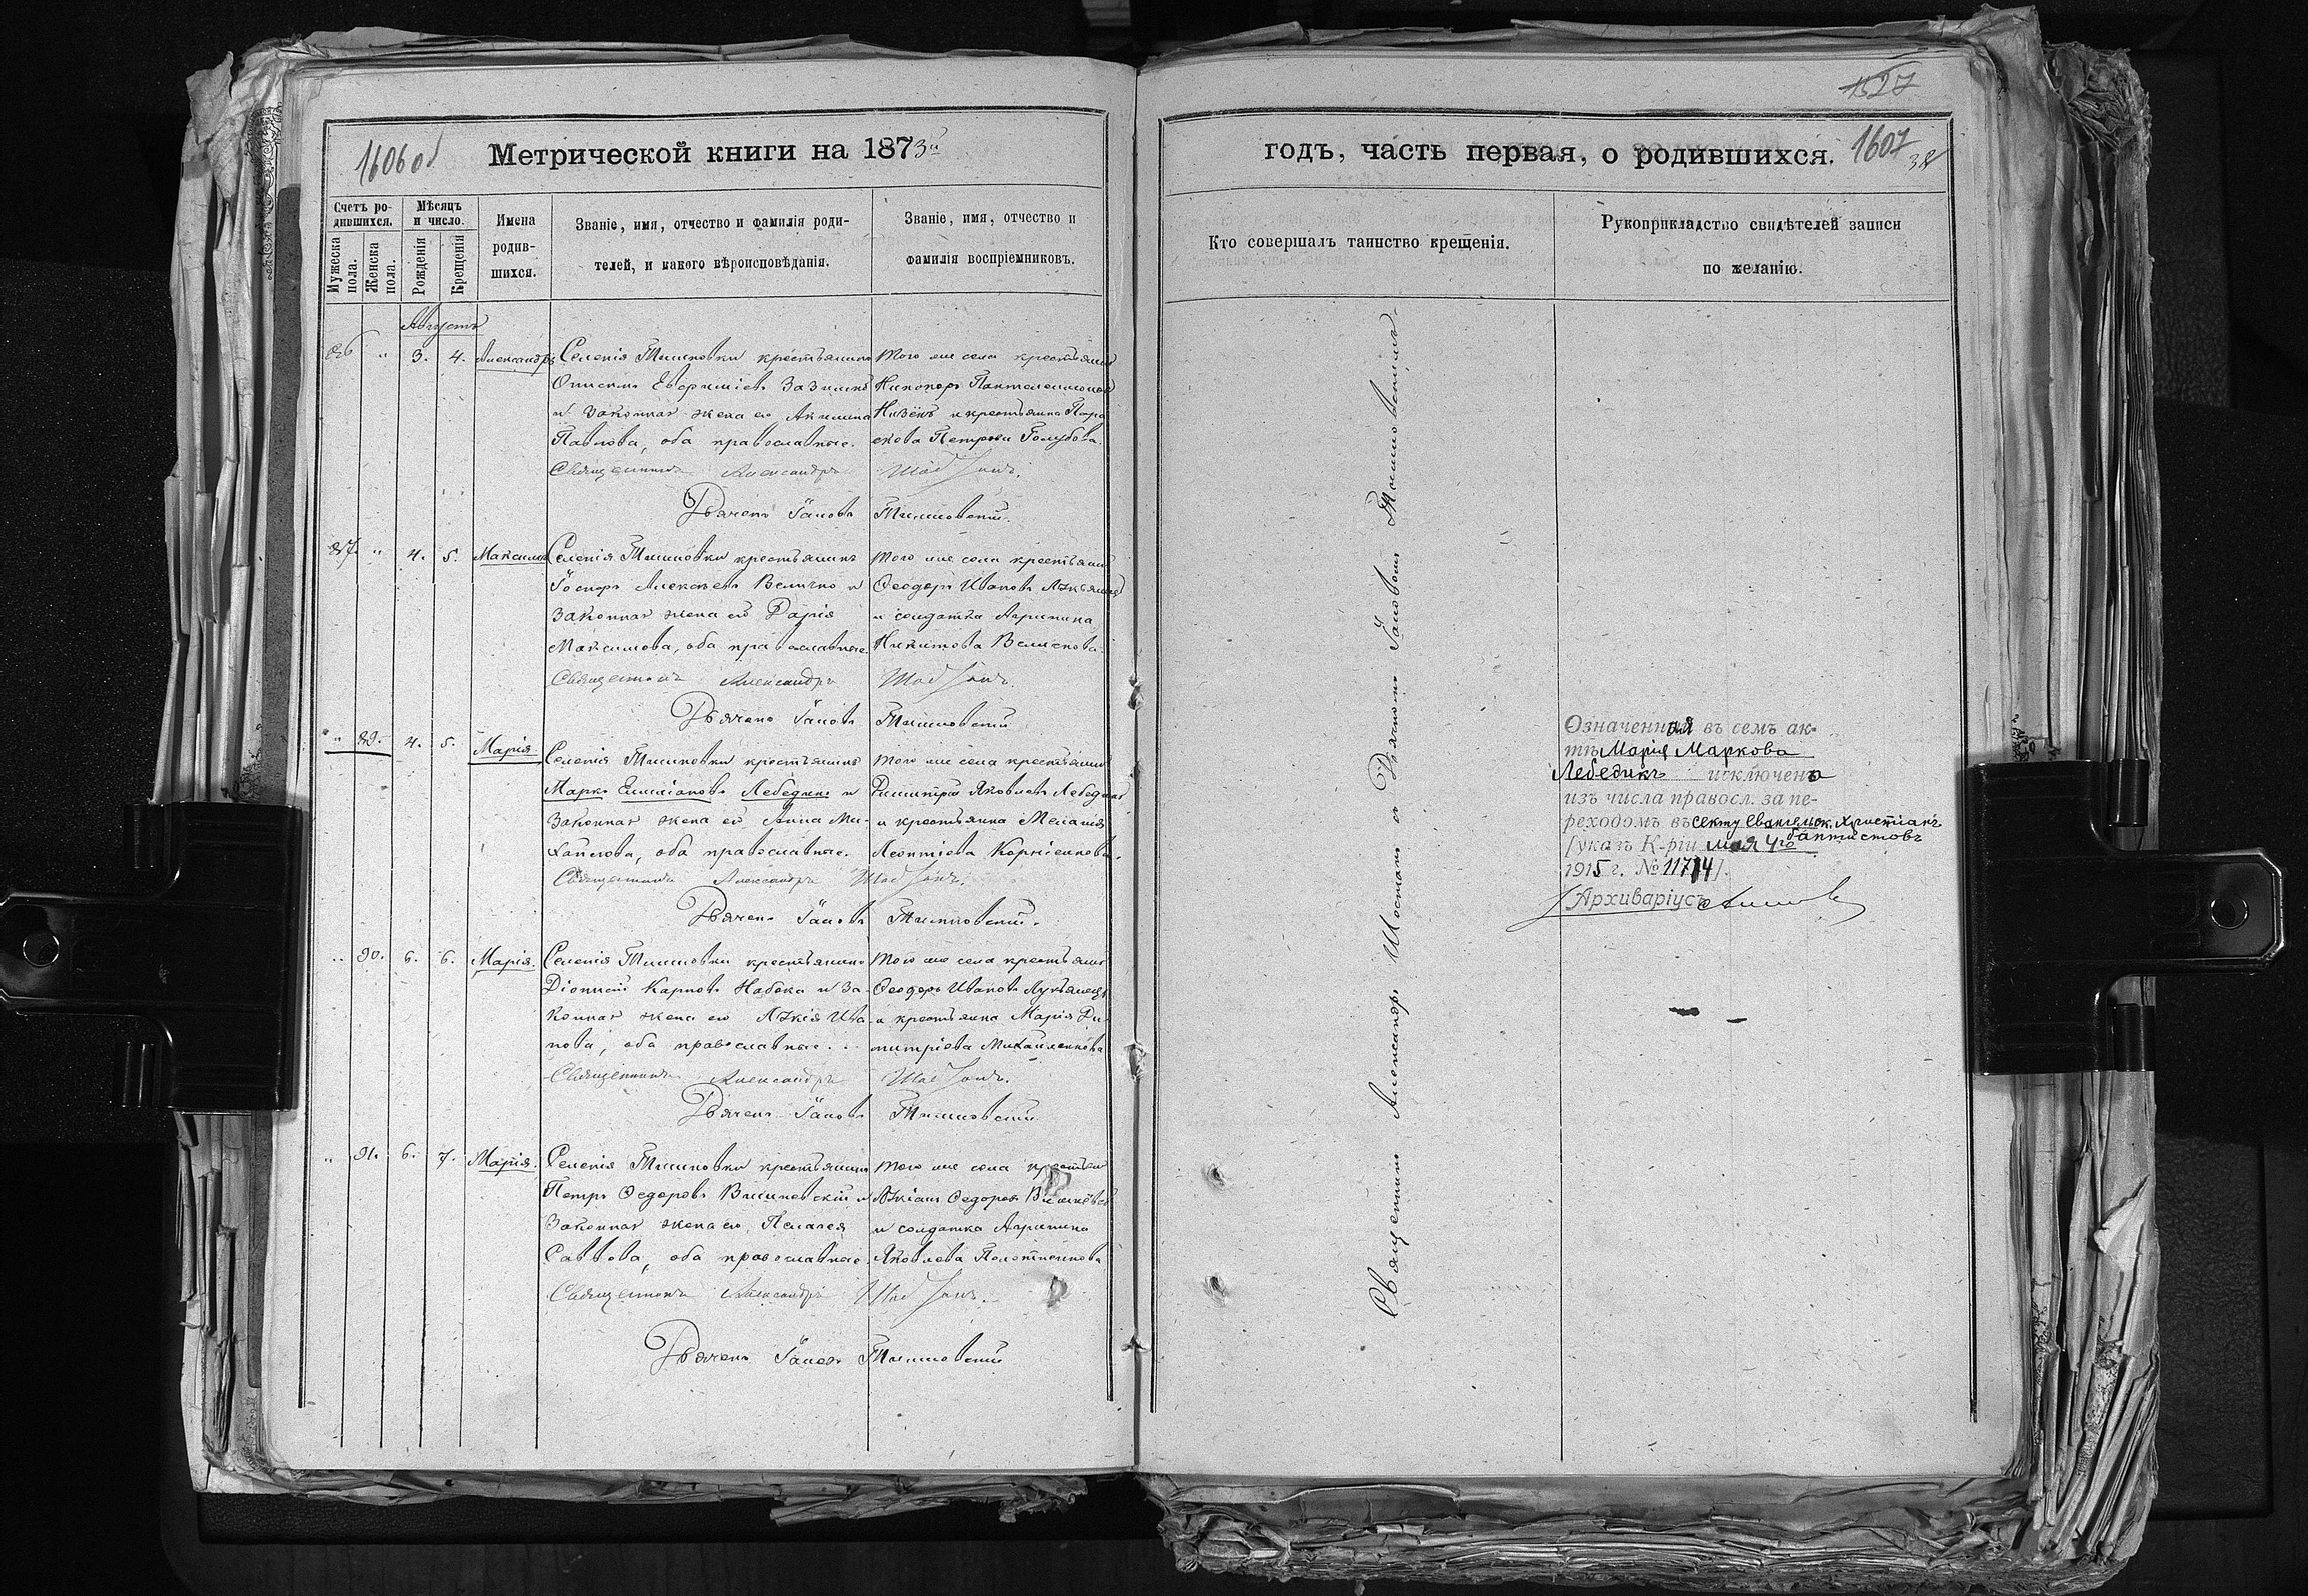 1527
1606 об
Метрической книги на 1873й
годъ, часть первая, о родившихся.
1607
38
Счетъ ро-
дившихся.
Мужеска
пола.
Женска
пола.
Мѣсяцъ
и число.
Рожденія
Крещенія
Имена
родив-
шихся.
Званіе, имя, отчество и фамилія роди-
телей, и какого вѣроисповѣданія.
Званіе, имя, отчество и
фамилія воспріемниковъ.
Кто совершалъ таинство крещенія.
Рукоприкладство свидѣтелей записи
по желанію.
Августъ
86 " 3. 4. Александръ
Селенія Тишковки крестьянинъ
Евфиміевъ
и законная жена его Акилина
Павлова, оба православные.
Того же села крестьянинъ
Никифоръ Пантелеимоновъ
и крестьянка Пара
скева Петрова Голубова.
Священникъ Александръ
Дьячекъ Іаковъ Тишковскій.
87. " 4. 5. Максимъ
Селенія Тишковки крестьянинъ
Іосифъ Алексѣевъ Величко и
законная жена его Дарія
Максимова, оба православные
Того же села крестьянинъ
Ѳеодоръ Ивановъ
и солдатка Агрипина
Никитова
Священникъ Александръ
Дьячекъ Іаковъ Тишковскій
" 89. 4. 5. Марія.
Селенія Тишковки крестьянинъ
Марко Емиліановъ Лебедикъ и
законная жена его Анна Ми-
хайлова, оба православные.
Того же села крестьянинъ
Димитрій Яковлевъ Лебедикъ
и крестьянка Меланія
Леонтіева Корніенкова.
Священникъ Александръ
Дьячекъ Іаковъ Тишковскій.
" 90. 6. 6. Марія.
Селенія Тишковки крестьянинъ
Діонисій Карповъ Набока и за-
конная жена его Ива-
нова, оба православные.
Того же села крестьянинъ
Ѳеодоръ Ивановъ Лукьянецъ
и крестьянка Марія Ди-
митріева Михайленкова
Священникъ Александръ
Дьячекъ Іаковъ Тишковскій
" 91. 6. 7. Марія.
Селенія Тишковки крестьянинъ
Петръ Ѳедоровъ Вишневскій и
законная жена его Пелагея
Саввова, оба православные.
Того же села крестьян
Ѳедоровъ
и солдатка Агрипина
Яковлева
Священникъ Александръ
Дьячекъ Іаковъ Тишковскій
Священникъ Александръ съ Дьячкомъ Іаковомъ Тишковскимъ.
Означенная въ семъ ак-
тѣ Марія Маркова
Лебедикъ исключена
изъ числа правосл. за пе-
реходомъ въ секту Евангельск. Христіанъ
баптистовъ
[указъ К-ріи мая 4го
1915 г. № 11714].
Архиваріусъ